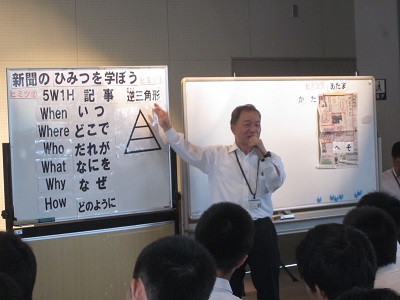 新聞の ひみつを学ぼう
ヒミツ② 5W1H 記事 逆三角形
When いつ
Where どこで
Who だれが
What なにを
Why なぜ
How どのように
あたま
かた
へそ